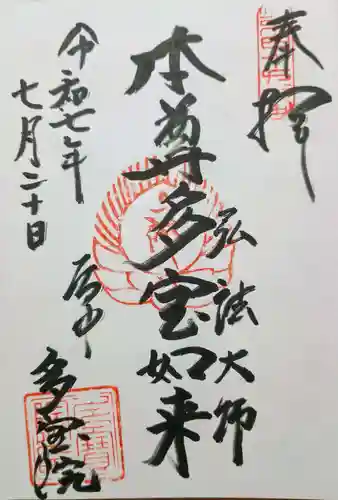 奉拝
本尊多宝如来
弘法大師
令和七年
七月二十日
谷中
多宝院